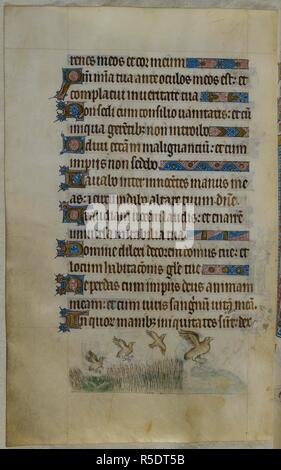 renes meos et cor meum
Qm mia tua ante oculos meos est: et
complacui in veritate tua
Non sedi cum consilio vanitatis: et cu
iniqua gerentib: non introibo
Odivi ecciam malignancium: et cum
impiis non sedebo
Lavabo inter innocentes manus me
as: circumdabo altare tuum dne.
Ut audiam vocem laudis: et enarre
universa mirabilia tua
Domine dilexi decorem domus tue: et
locum habitacionis glie tue
Ne perdas cum impiis deus animam
meam: et cum viris sangnu vitam mea.
In quor manib: iniquitates sut: dex
alamy
Image ID: R5DT5B
www.alamy.com